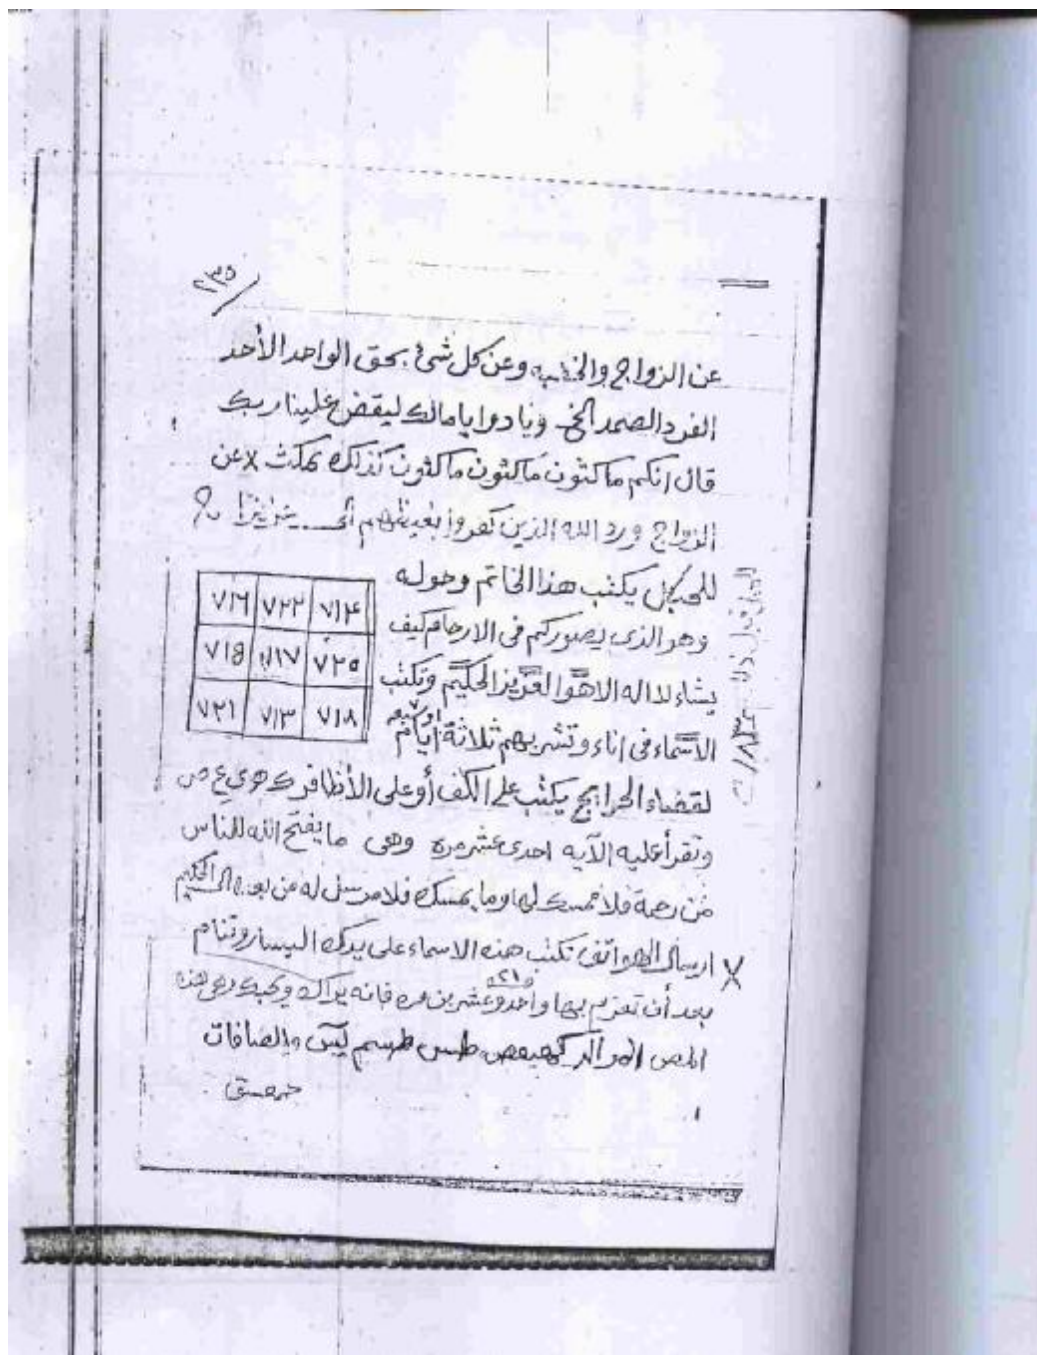 ٢٣٥
عن الزواج والخطبه وعن كل شئ بحق الواحد الأحد
الفرد الصمد الخ ونادوا يا مالك ليقض علينا ربك
قال انكم ماكثون ماكثون ماكثون كذلك يمكث عن
الزواج ورد الله الذين كفروا بغيظهم الى عزيزا
للحبل يكتب هذا الخاتم وحوله
وهو الذى يصوركم فى الارحام كيف
يشاء لا اله الا هو العزيز الحكيم وتكتب
الاسماء فى اناء وتشربهم ثلاثة ايام
٧١٤ ٧٢٢ ٧١٦
٧٢٠ ٧١٧ ٧١٥
٧١٨ ٧١٣ ٧٢١
لقضاء الحوايج يكتب على الكف أو على الأظافر ك ه ي ع ص
وتقرأ عليه الآيه احدى عشر مره وهى ما يفتح الله للناس
من رحمة فلا ممسك لها وما يمسك فلا مرسل له من بعده الحكيم
ارسال الهواتف تكتب هذه الاسماء على يدك اليسار وتنام
بعد أن تعزم بها واحد وعشرين مره ٢١ فانه يراك وهى هذه
المص المر الر كهيعص طس طسم يس والصافات
حمعسق